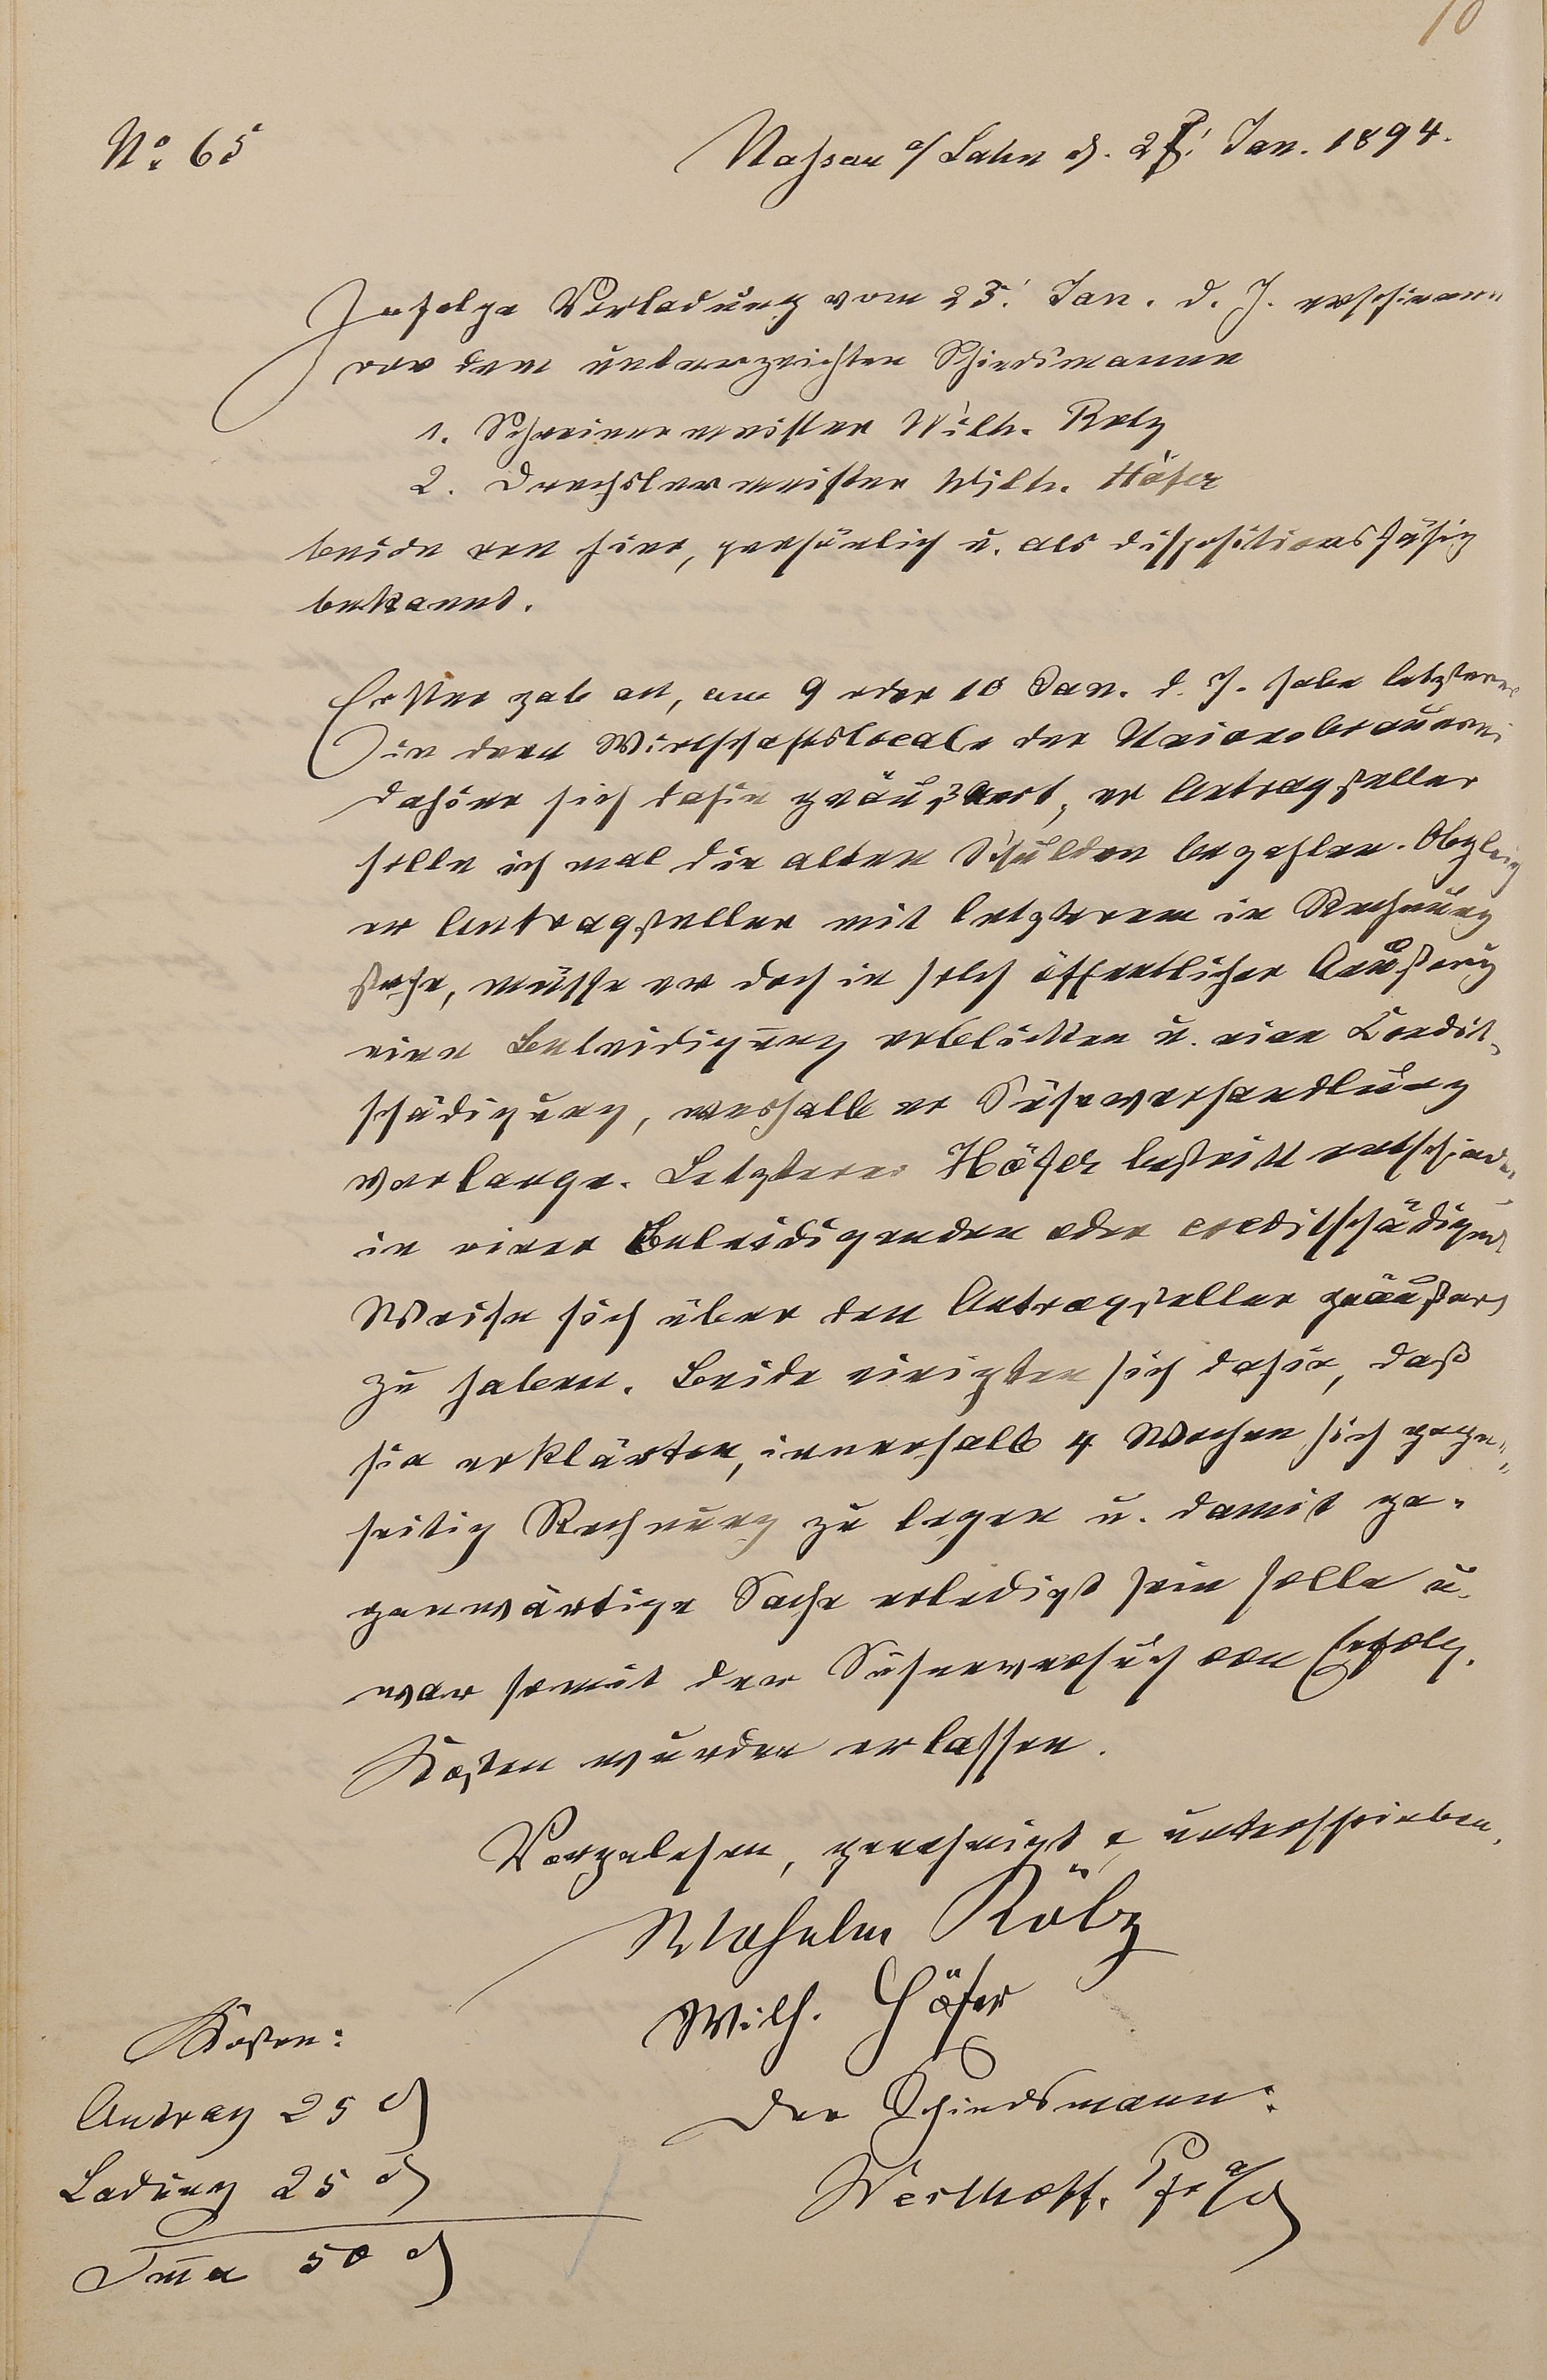 10
No. 65
Nassau a/ Lahn d. 27. Jan. 1894.
Infolge Vorladung vom 23. Jan. d. J. erschienen
vor dem unterzeichten Schiedsmanne
1. Schreinermeister Wilh. Rolz
2. Drechslermeister Wilh. Höfer
beide von hier, persönlich u. als dispositionsfähig
bekannt.
Erster gab an, am 9 oder 10 Jan. d. J. habe letzterer
in dem Wirthschaftslocale der Unionsbrauerei
dahier sich dahin geäußert, er Antragsteller
solle ich mal die alten Schulden bezahlen. Obgleich
er Antragsteller mit letzterem in Rechnung
stehe, müsse er doch in solch öffentlicher Äußerung
eine Beleidigung erblicken u. eine Credit-
schädigung, weshalb er Sühneverhandlung
verlange. Letzterer Höfer bestritt entschieden
in einer beleidigenden oder creditschädigend
Weise sich über den Antragsteller geäußert
zu haben. Beide einigten sich dahin, daß
sie erklärten, innerhalb 4 Wochen sich gegen-
seitig Rechnung zu legen u. damit ge-
genwärtige Sache erledigt sein solle u.
war somit der Sühneversuch von Erfolg.
Kosten wurden erlassen.
Vorgelesen, genehmigt & unterschrieben.
Wilhelm Rölz
Wilh. Höfer
Der Schiedsmann:
Kosten:
Antrag 25 d
Ladung 25 d
Sma 50 d